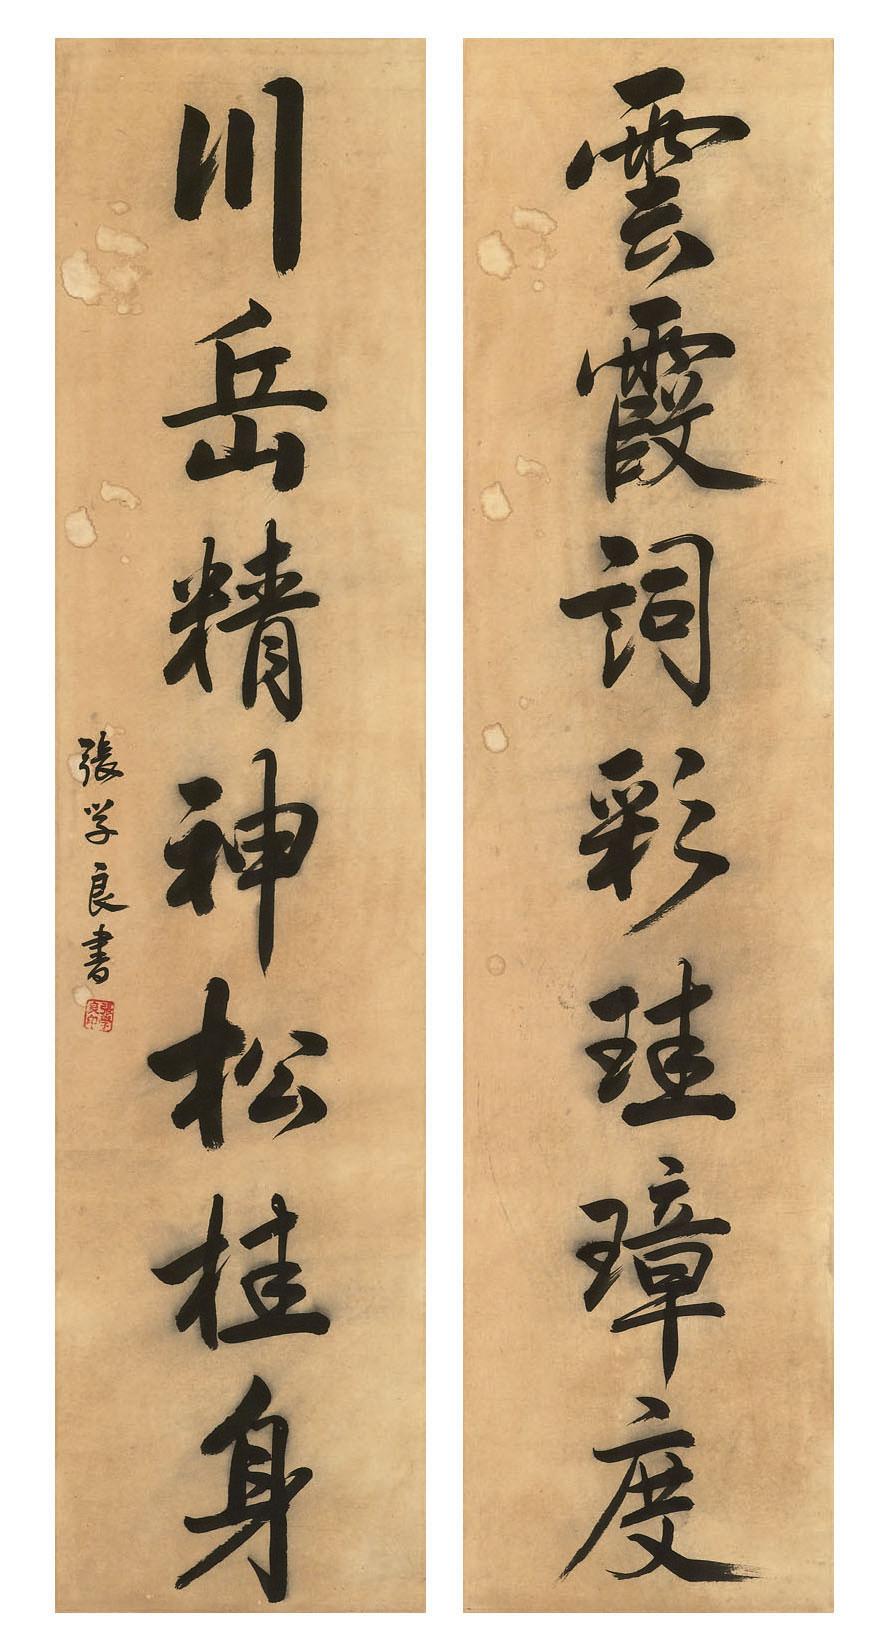 雲霞詞彩珪璋度
川岳精神松桂身
張学良書